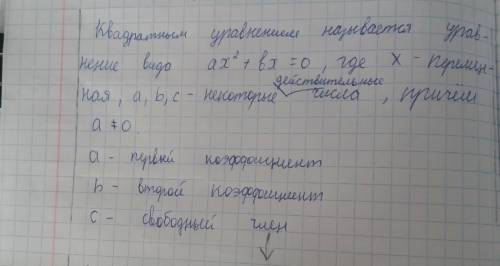 Квадратным уравнением называется урав-
нение вида ax² + bx = 0, где x - перемен-
действительные
ная, a, b, c - некоторые числа, причём
a ≠ 0.
a - первый коэффициент
b - второй коэффициент
c - свободный член